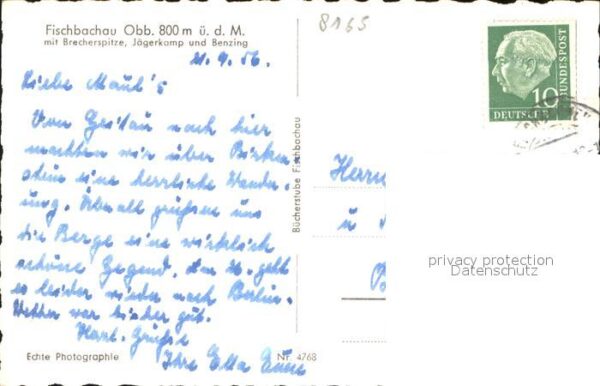 Fischbachau Obb. 800 m ü. d. M.
mit Brecherspitze, Jägerkamp und Benzing
8165
21. 9. 56.
Liebe Maul's
Von Geitau nach hier
machten wir über Birken
stein eine herrliche Wander
ung. Überall grüßen uns
die Berge eine wirklich
schöne Gegend, am 26. geht
es leider wieder nach Berlin.
Wetter war bisher gut.
Herzl. Grüße
Ihre Ella
Echte Photographie
Nr. 4768
Bücherstube Fischbachau
Herrn
u
B
10
DEUTSCHE
BUNDESPOST
privacy protection
Datenschutz